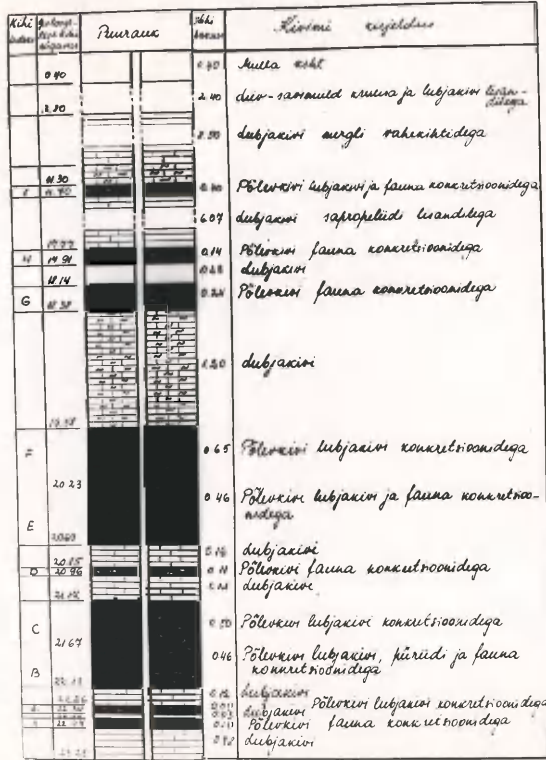 Kihi Puurauk Kihi Kivimi kirjeldus
0.40 0.40 Mulla kiht
2.80 2.40 kruusa ja lubjakivi
Lubjakivi mergli vahekihtidega
11.30
11.70 Põlevkivi lubjakivi ja fauna konkretsioonidega
6.07 Lubjakivi sapropeliidi lisandilega
H 17.91 0.14 Põlevkivi fauna konkretsioonidega
18.14 Lubjakivi
G 18.38 0.24 Põlevkivi fauna konkretsioonidega
1.20 Lubjakivi
19.58
F 0.65 Põlevkivi lubjakivi konkretsioonidega
20.23
0.46 Põlevkivi lubjakivi ja fauna konkretsioo-
nidega
E 20.69
0.16 Lubjakivi
20.85
D 20.96 0.11 Põlevkivi fauna konkretsioonidega
Lubjakivi
C 0.50 Põlevkivi lubjakivi konkretsioonidega
21.67
B 0.46 Põlevkivi lubjakivi, püriidi ja fauna
konkretsioonidega
22.13
Lubjakivi
Põlevkivi lubjakivi konkretsioonidega
Lubjakivi
Põlevkivi fauna konkretsioonidega
Lubjakivi